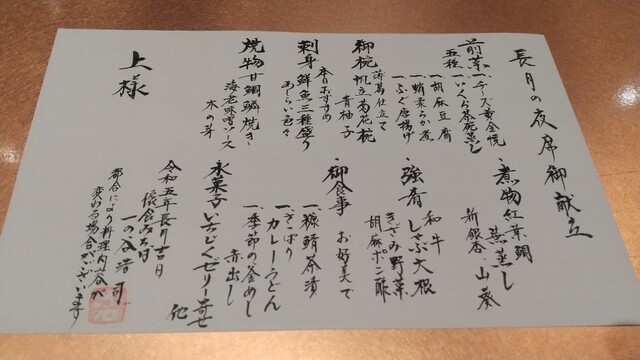 長月の夜席御献立
前菜
五種
一、チーズ黄金焼
一、いくら茶碗蒸し
一、胡麻豆腐
一、蛸柔らか煮
一、ふぐ唐揚げ
御椀
帆立菊花椀
薄葛仕立て
青柚子
刺身
鮮魚三種盛り
本日おすすめ
あしらい色々
焼物
甘鯛鱗焼き
海老味噌ソース
木の芽
上様
・煮物
紅葉鯛
蕪蒸し
新銀杏・山葵
・強肴
和牛
しゃぶ大根
きざみ野菜
胡麻ポン酢
・御食事
お好みで
一、糠鯖茶漬
一、さっぱりカレーうどん
一、季節の釜めし
赤出し
水菓子
いちじくゼリー寄せ
他
令和五年長月吉日
一の谷
都合により料理内容が
変わる場合がございます